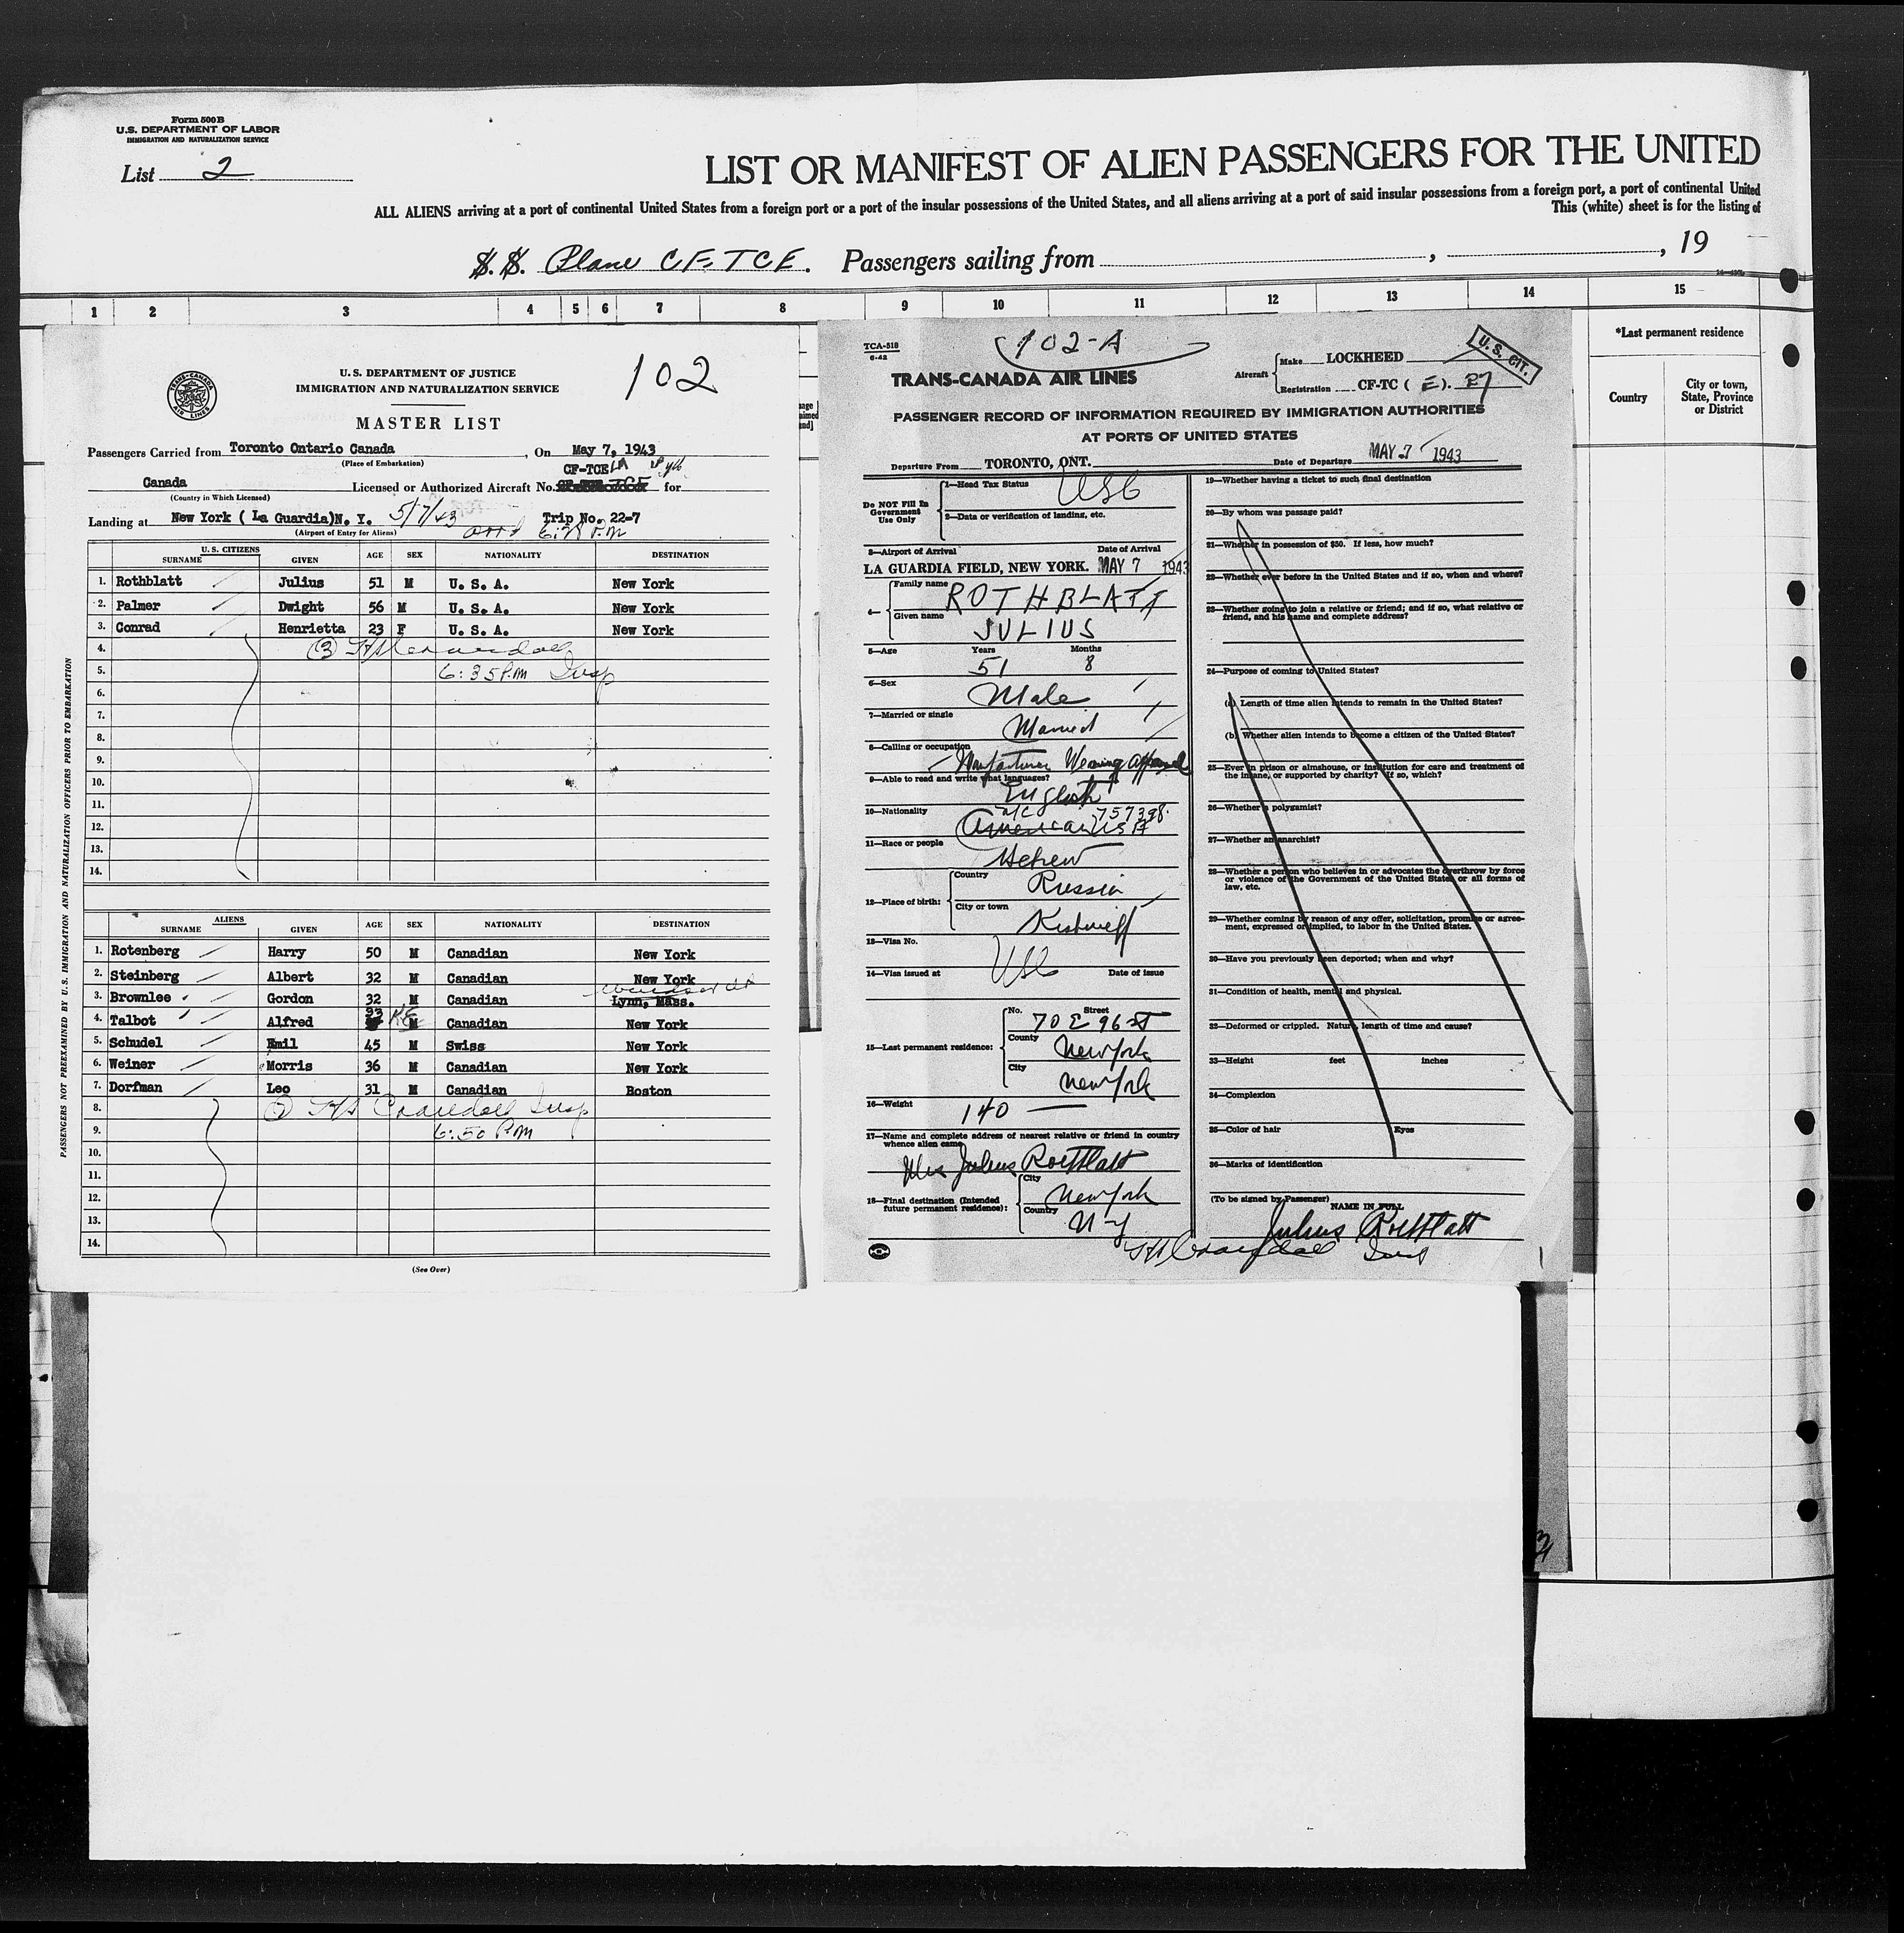 Form 500B
U.S. DEPARTMENT OF LABOR
IMMIGRATION AND NATURALIZATION SERVICE
List 2
LIST OR MANIFEST OF ALIEN PASSENGERS FOR THE UNITED
ALL ALIENS arriving at a port of continental United States from a foreign port or a port of the insular possessions of the United States, and all aliens arriving at a port of said insular possessions from a foreign port, a port of continental United
This (white) sheet is for the listing of
S. S. Plane CF-TCE. Passengers sailing from , , 19
1 2 3 4 5 6 7 8 9 10 11 12 13 14 15
*Last permanent residence
Country City or town, State, Province or District
102
TRANS-CANADA AIR LINES
U.S. DEPARTMENT OF JUSTICE
IMMIGRATION AND NATURALIZATION SERVICE
MASTER LIST
Passengers Carried from Toronto Ontario Canada, On May 7, 1943
(Place of Embarkation)
CF-TCE
Canada Licensed or Authorized Aircraft No. for
(Country in Which Licensed)
Landing at New York ( La Guardia)N. Y. 5/7/43 Trip No. 22-7
(Airport of Entry for Aliens) arrd 6:28 P.M
U.S. CITIZENS
SURNAME GIVEN AGE SEX NATIONALITY DESTINATION
1. Rothblatt Julius 51 M U. S. A. New York
2. Palmer Dwight 56 M U. S. A. New York
3. Conrad Henrietta 23 F U. S. A. New York
4. (3)
5. 6:35 P.M Insp
6.
7.
8.
9.
10.
11.
12.
13.
14.
ALIENS
SURNAME GIVEN AGE SEX NATIONALITY DESTINATION
1. Rotenberg Harry 50 M Canadian New York
2. Steinberg Albert 32 M Canadian New York
3. Brownlee Gordon 32 M Canadian Lynn, Mass.
4. Talbot Alfred 33 M Canadian New York
5. Schudel Emil 45 M Swiss New York
6. Weiner Morris 36 M Canadian New York
7. Dorfman Leo 31 M Canadian Boston
8. (7) Crandall Insp
9. 6:50 P.M
10.
11.
12.
13.
14.
(See Over)
PASSENGERS NOT PREEXAMINED BY U.S. IMMIGRATION AND NATURALIZATION OFFICERS PRIOR TO EMBARKATION
TCA-518
6-42
102-A
TRANS-CANADA AIR LINES
Aircraft Make LOCKHEED
Registration CF-TC ( E ). 27
U.S. CIT.
PASSENGER RECORD OF INFORMATION REQUIRED BY IMMIGRATION AUTHORITIES
AT PORTS OF UNITED STATES
Departure From TORONTO, ONT. Date of Departure MAY 7 1943
Do NOT Fill In Government Use Only
1—Head Tax Status USC
2—Data or verification of landing, etc.
3—Airport of Arrival Date of Arrival
LA GUARDIA FIELD, NEW YORK. MAY 7 1943
4— Family name ROTHBLATT
Given name JULIUS
5—Age Years 51 Months 8
6—Sex Male
7—Married or single Married
8—Calling or occupation Manufacturer Wearing Apparel
9—Able to read and write what languages? English
10—Nationality American USA N/C 757398
11—Race or people Hebrew
12—Place of birth: Country Russia
City or town Kishineff
13—Visa No. USC
14—Visa issued at Date of issue
15—Last permanent residence: No. Street 70 E 96 ST
County New York
City New York
16—Weight 140
17—Name and complete address of nearest relative or friend in country whence alien came
Mrs Julius Rothblatt
18—Final destination (Intended future permanent residence): City New York
Country N Y
19—Whether having a ticket to such final destination
20—By whom was passage paid?
21—Whether in possession of $50. If less, how much?
22—Whether ever before in the United States and if so, when and where?
23—Whether going to join a relative or friend; and if so, what relative or friend, and his name and complete address?
24—Purpose of coming to United States?
(a) Length of time alien intends to remain in the United States?
(b) Whether alien intends to become a citizen of the United States?
25—Ever in prison or almshouse, or institution for care and treatment of the insane, or supported by charity? If so, which?
26—Whether a polygamist?
27—Whether an anarchist?
28—Whether a person who believes in or advocates the overthrow by force or violence of the Government of the United States or all forms of law, etc.
29—Whether coming by reason of any offer, solicitation, promise or agreement, expressed or implied, to labor in the United States.
30—Have you previously been deported; when and why?
31—Condition of health, mental and physical.
32—Deformed or crippled. Nature, length of time and cause?
33—Height feet inches
34—Complexion
35—Color of hair Eyes
36—Marks of identification
(To be signed by Passenger)
NAME IN FULL
Julius Rothblatt
Crandall Insp